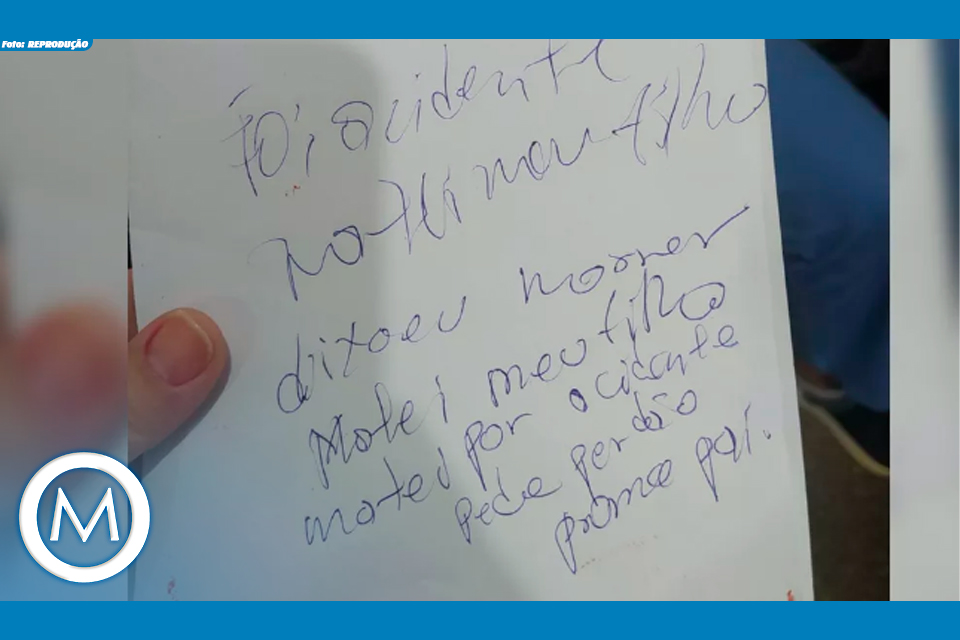 Foto: REPRODUÇÃO
Foi acidente
matei meu filho
dixaeu morrer
Matei meu filho
matei por acidente
pede perdão
prome pai.
M